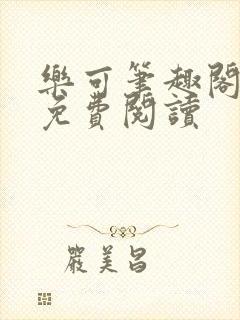 樂可筆趣閣
免費閱讀
嚴美昌